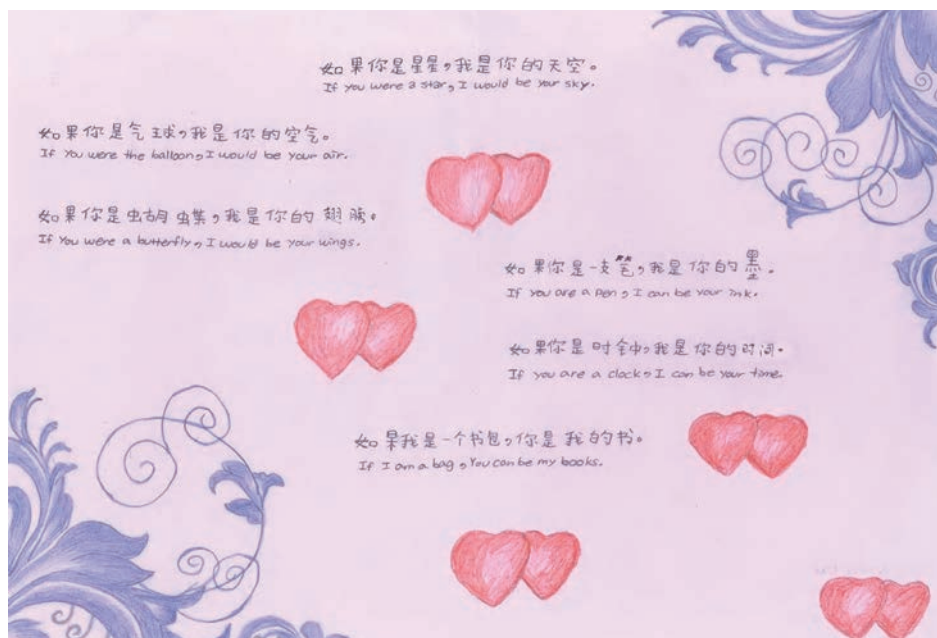 如果你是星星，我是你的天空。
If you were a star, I would be your sky.
如果你是气球，我是你的空气。
If you were the balloon, I would be your air.
如果你是蝴蝶，我是你的翅膀。
If you were a butterfly, I would be your wings.
如果你是一支笔，我是你的墨。
If you are a pen, I can be your ink.
如果你是时钟，我是你的时间。
If you are a clock, I can be your time.
如果我是一个书包，你是我的书。
If I am a bag, You can be my books.